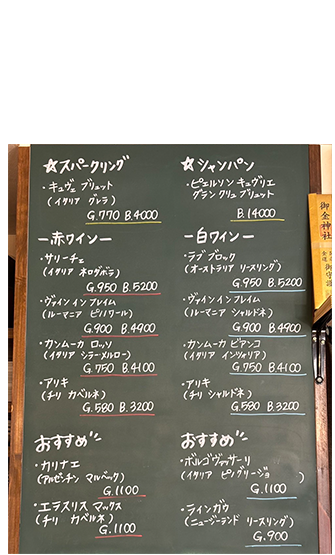 ☆スパークリング
・キュヴェ ブリュット
(イタリア グレラ)
G.770 B.4000
ー赤ワインー
・サリーチェ
(イタリア ネログボラ)
G.950 B.5200
・ヴァイン イン フレイム
(ルーマニア ピノワール)
G.900 B.4900
・カンムーカ ロッソ
(イタリア シラーメルロー)
G.750 B.4100
・アリキ
(チリ カベルネ)
G.580 B.3200
おすすめ
・カリナエ
(アルゼンチン マルベック)
G.1100
・エラスリス マックス
(チリ カベルネ)
G.1100
☆シャンパン
・ピエルソン キュヴリエ
グラン クリュ ブリュット
B.14000
ー白ワインー
・ラブ ブロック
(オーストラリア リースリング)
G.950 B.5200
・ヴァイン イン フレイム
(ルーマニア シャルドネ)
G.900 B.4900
・カンムーカ ビアンコ
(イタリア インツォリア)
G.750 B.4100
・アリキ
(チリ シャルドネ)
G.580 B.3200
おすすめ
・ボルゴヴァッサーリ
(イタリア ピノグリージョ)
G.1100
・ラインガウ
(ニュージーランド リースリング)
G.900
御金神社
御守護